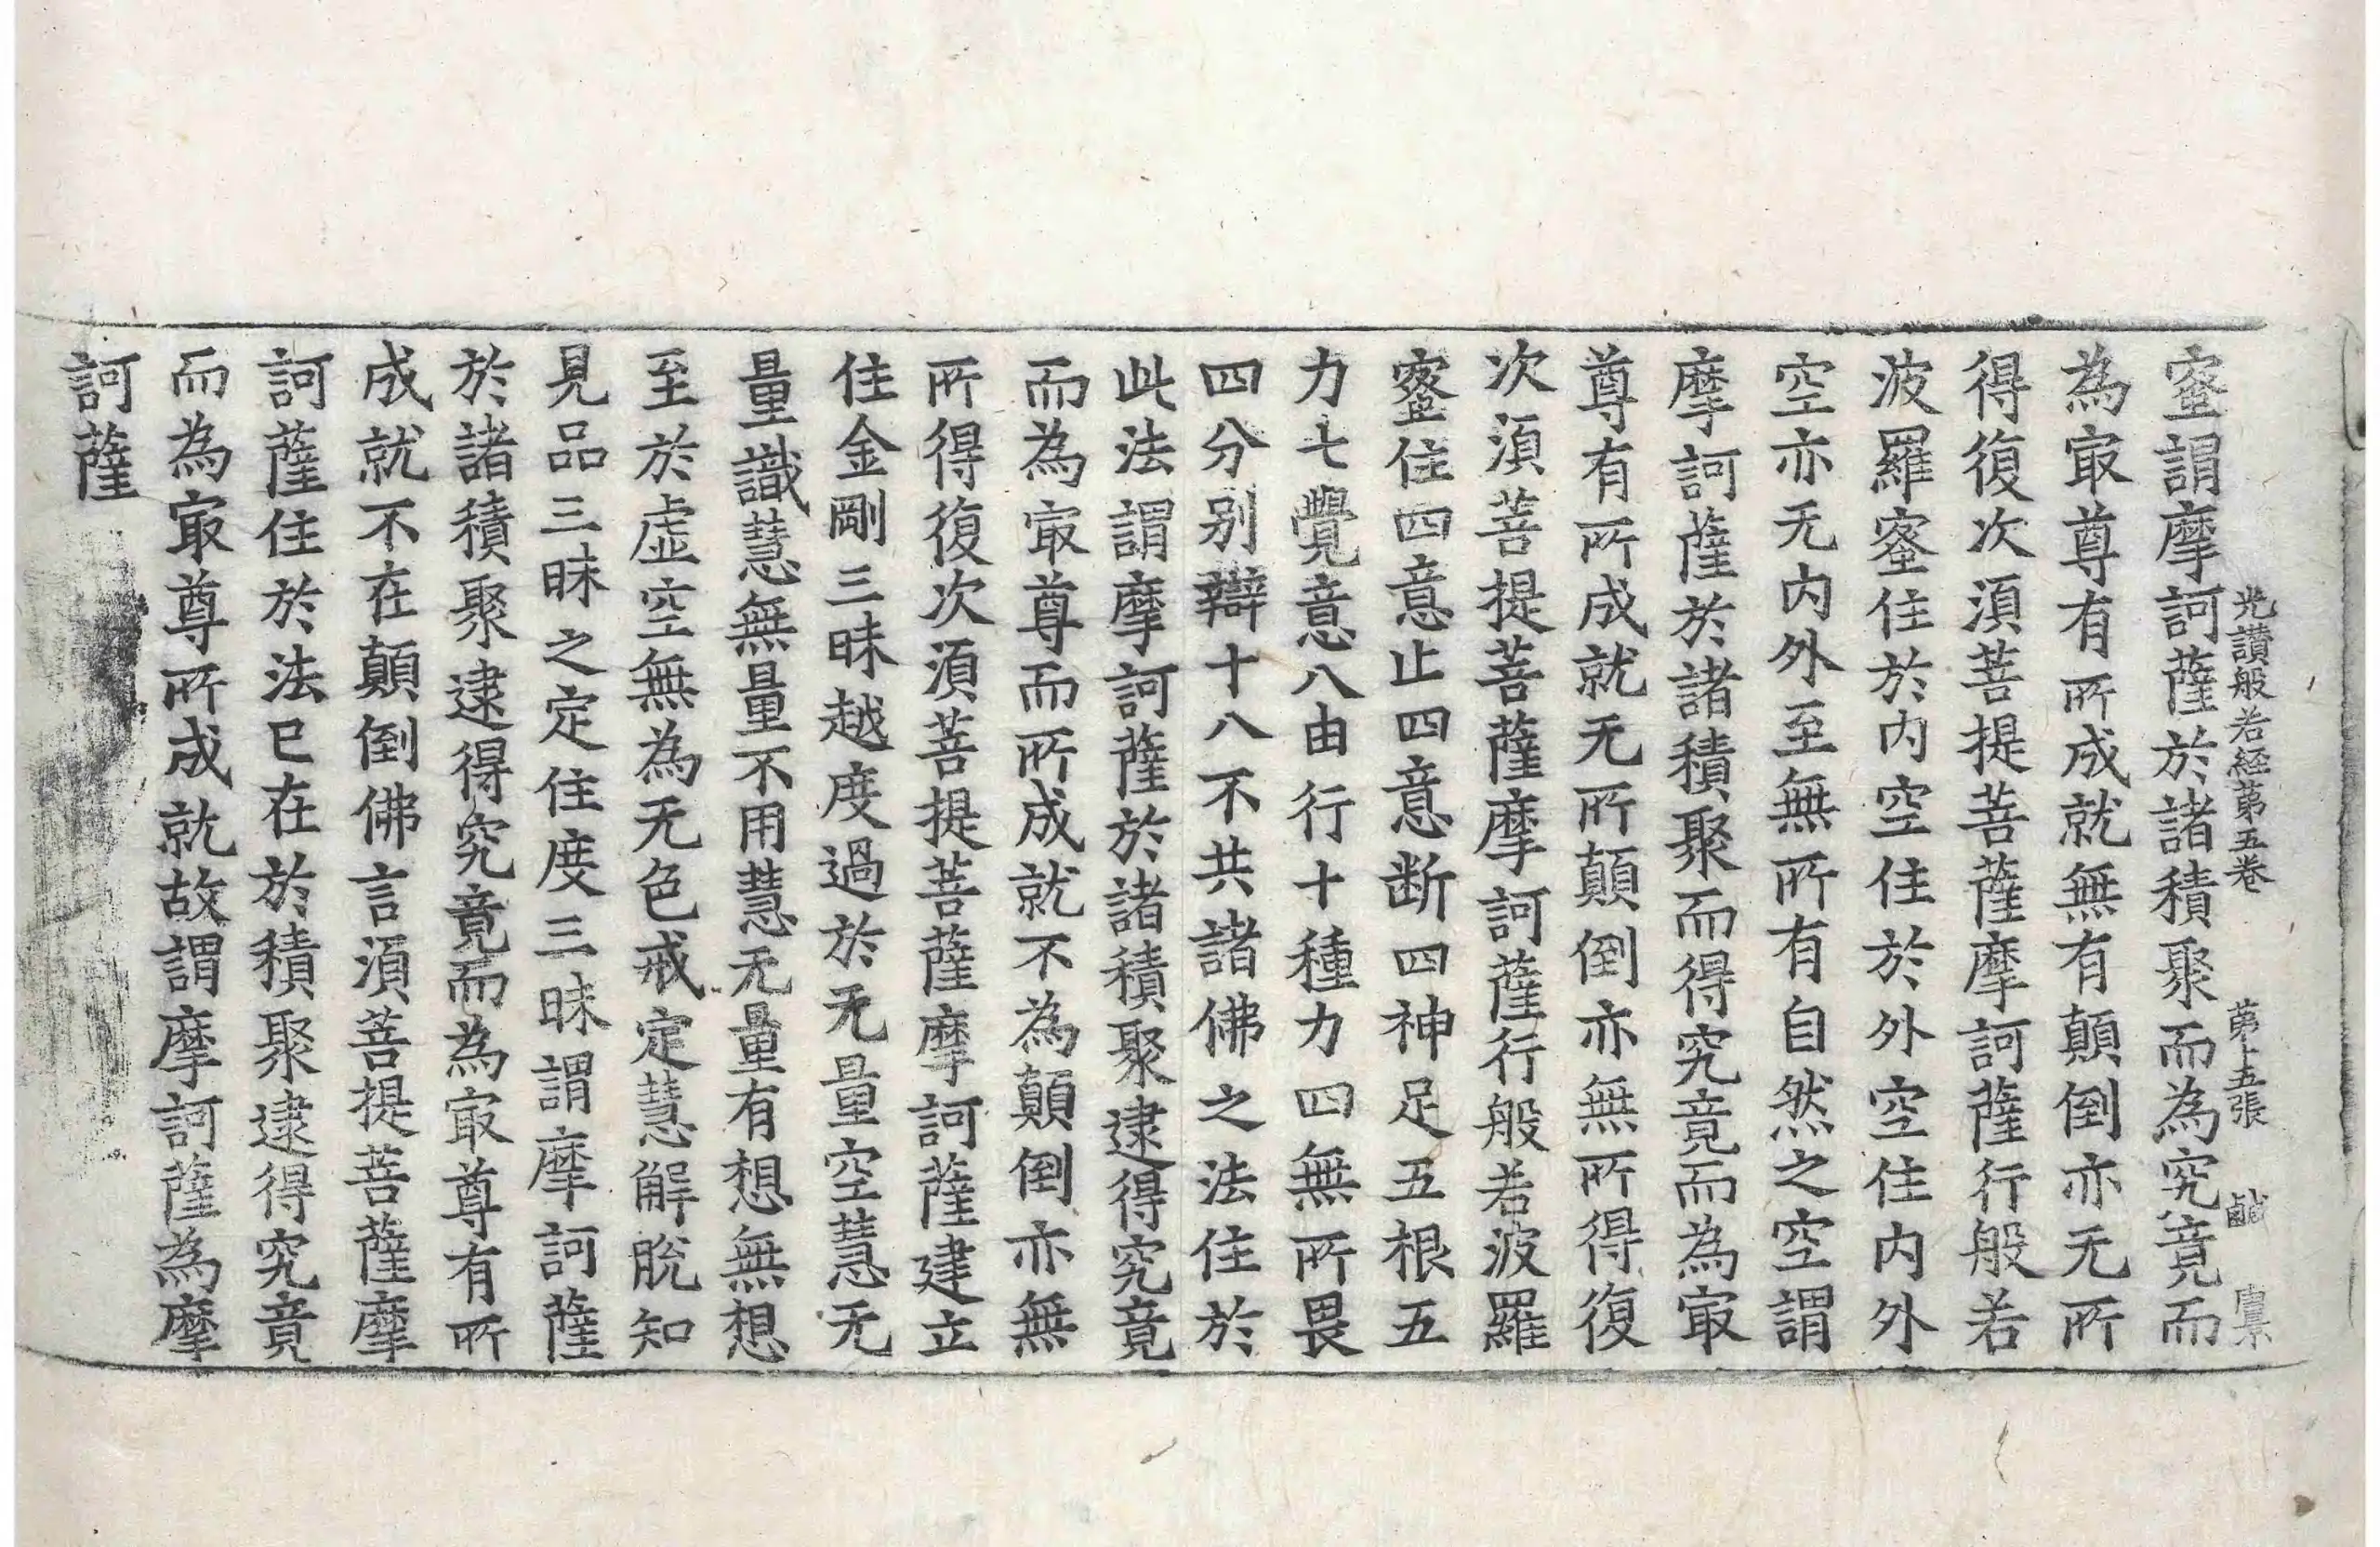 光讃般若経第五卷　第十五張　鹹
蜜謂摩訶薩於諸積聚而為究竟而
為㝡尊有所成就無有顛倒亦无所
得復次湏菩提菩薩摩訶薩行般若
波羅蜜住於内空住於外空住内外
空亦无内外至無所有自然之空謂
摩訶薩於諸積聚而得究竟而為㝡
尊有所成就无所顛倒亦無所得復
次湏菩提菩薩摩訶薩行般若波羅
蜜住四意止四意断四神足五根五
力七覺意八由行十種力四無所畏
四分别辯十八不共諸佛之法住於
此法謂摩訶薩於諸積聚逮得究竟
而為㝡尊而所成就不為顛倒亦無
所得復次湏菩提菩薩摩訶薩建立
住金剛三昧越度過於无量空慧无
量識慧無量不用慧无量有想無想
至於虛空無為无色戒定慧解脫知
見品三昧之定住度三昧謂摩訶薩
於諸積聚逮得究竟而為㝡尊有所
成就不在顛倒佛言湏菩提菩薩摩
訶薩住於法已在於積聚逮得究竟
而為㝡尊所成就故謂摩訶薩為摩
訶薩